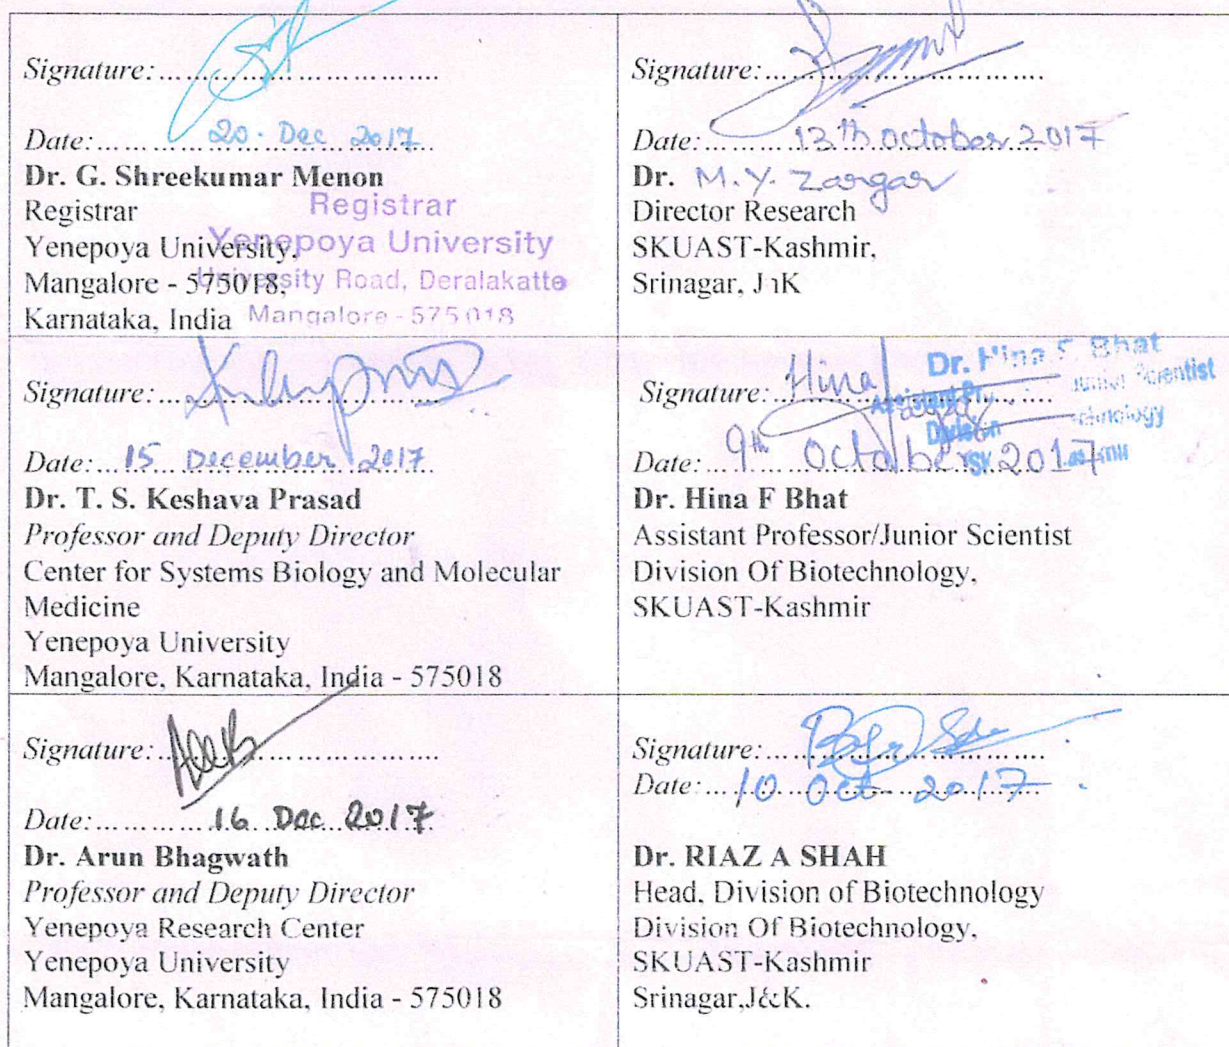 Signature:................................
Date:...... 20. Dec 2017
Dr. G. Shreekumar Menon
Registrar
Registrar
Yenepoya University.
Yenepoya University
Mangalore - 575018,
University Road, Deralakatte
Karnataka, India
Mangalore - 575018
Signature:................................
Date:........ 13th October 2017
Dr. M.Y. Zargar
Director Research
SKUAST-Kashmir,
Srinagar, JnK
Signature:................................
Date:... 15 December 2017
Dr. T. S. Keshava Prasad
Professor and Deputy Director
Center for Systems Biology and Molecular
Medicine
Yenepoya University
Mangalore, Karnataka, India - 575018
Signature: Hina
Dr. Hina F Bhat
Scientist
Division
Date:... 9th October 2017
Dr. Hina F Bhat
Assistant Professor/Junior Scientist
Division Of Biotechnology,
SKUAST-Kashmir
Signature:................................
Date:............ 16 Dec 2017
Dr. Arun Bhagwath
Professor and Deputy Director
Yenepoya Research Center
Yenepoya University
Mangalore, Karnataka, India - 575018
Signature:................................
Date:... 10 Oct - 2017
Dr. RIAZ A SHAH
Head, Division of Biotechnology
Division Of Biotechnology,
SKUAST-Kashmir
Srinagar,J&K.